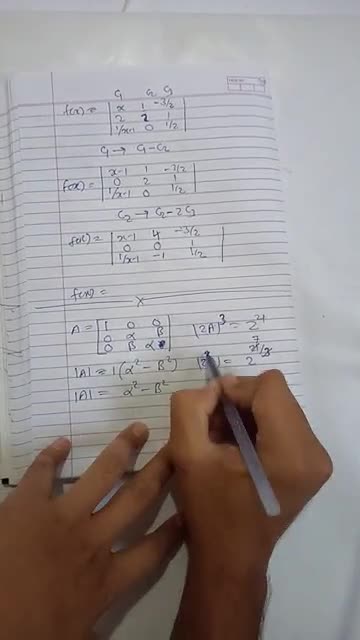 C₁ C₂ C₃
f(x) = | x 1 -3/2 |
| 2 2 1 |
| 1/x-1 0 1/2 |
C₁ → C₁ - C₂
f(x) = | x-1 1 -3/2 |
| 0 2 1 |
| 1/x-1 0 1/2 |
C₂ → C₂ - 2C₃
f(x) = | x-1 4 -3/2 |
| 0 0 1 |
| 1/x-1 -1 1/2 |
f(x) =
x
A = [ 1 0 0 ] |2A|³ = 2
[ 0 α β ]
[ 0 β α ]
|A| = 1(α² - β²) = 2
|A| = α² - β²